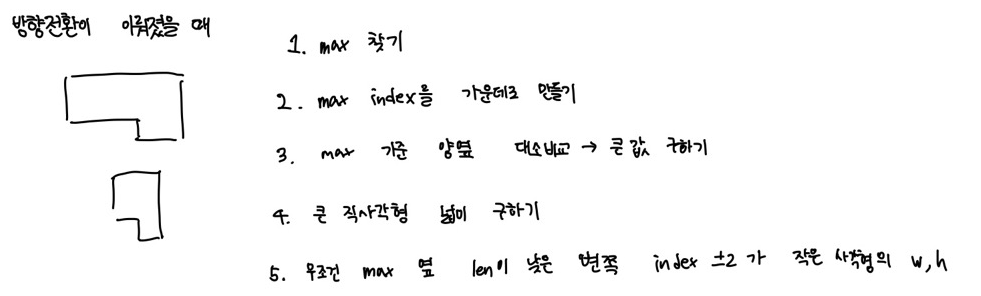 방향전환이 이뤄졌을 때
1. max 찾기
2. max index를 가운데로 만들기
3. max 기준 양옆 대소비교 → 큰 값 구하기
4. 큰 직사각형 넓이 구하기
5. 무조건 max 옆 len이 낮은 변쪽 index ±2 가 작은 사각형의 w, h